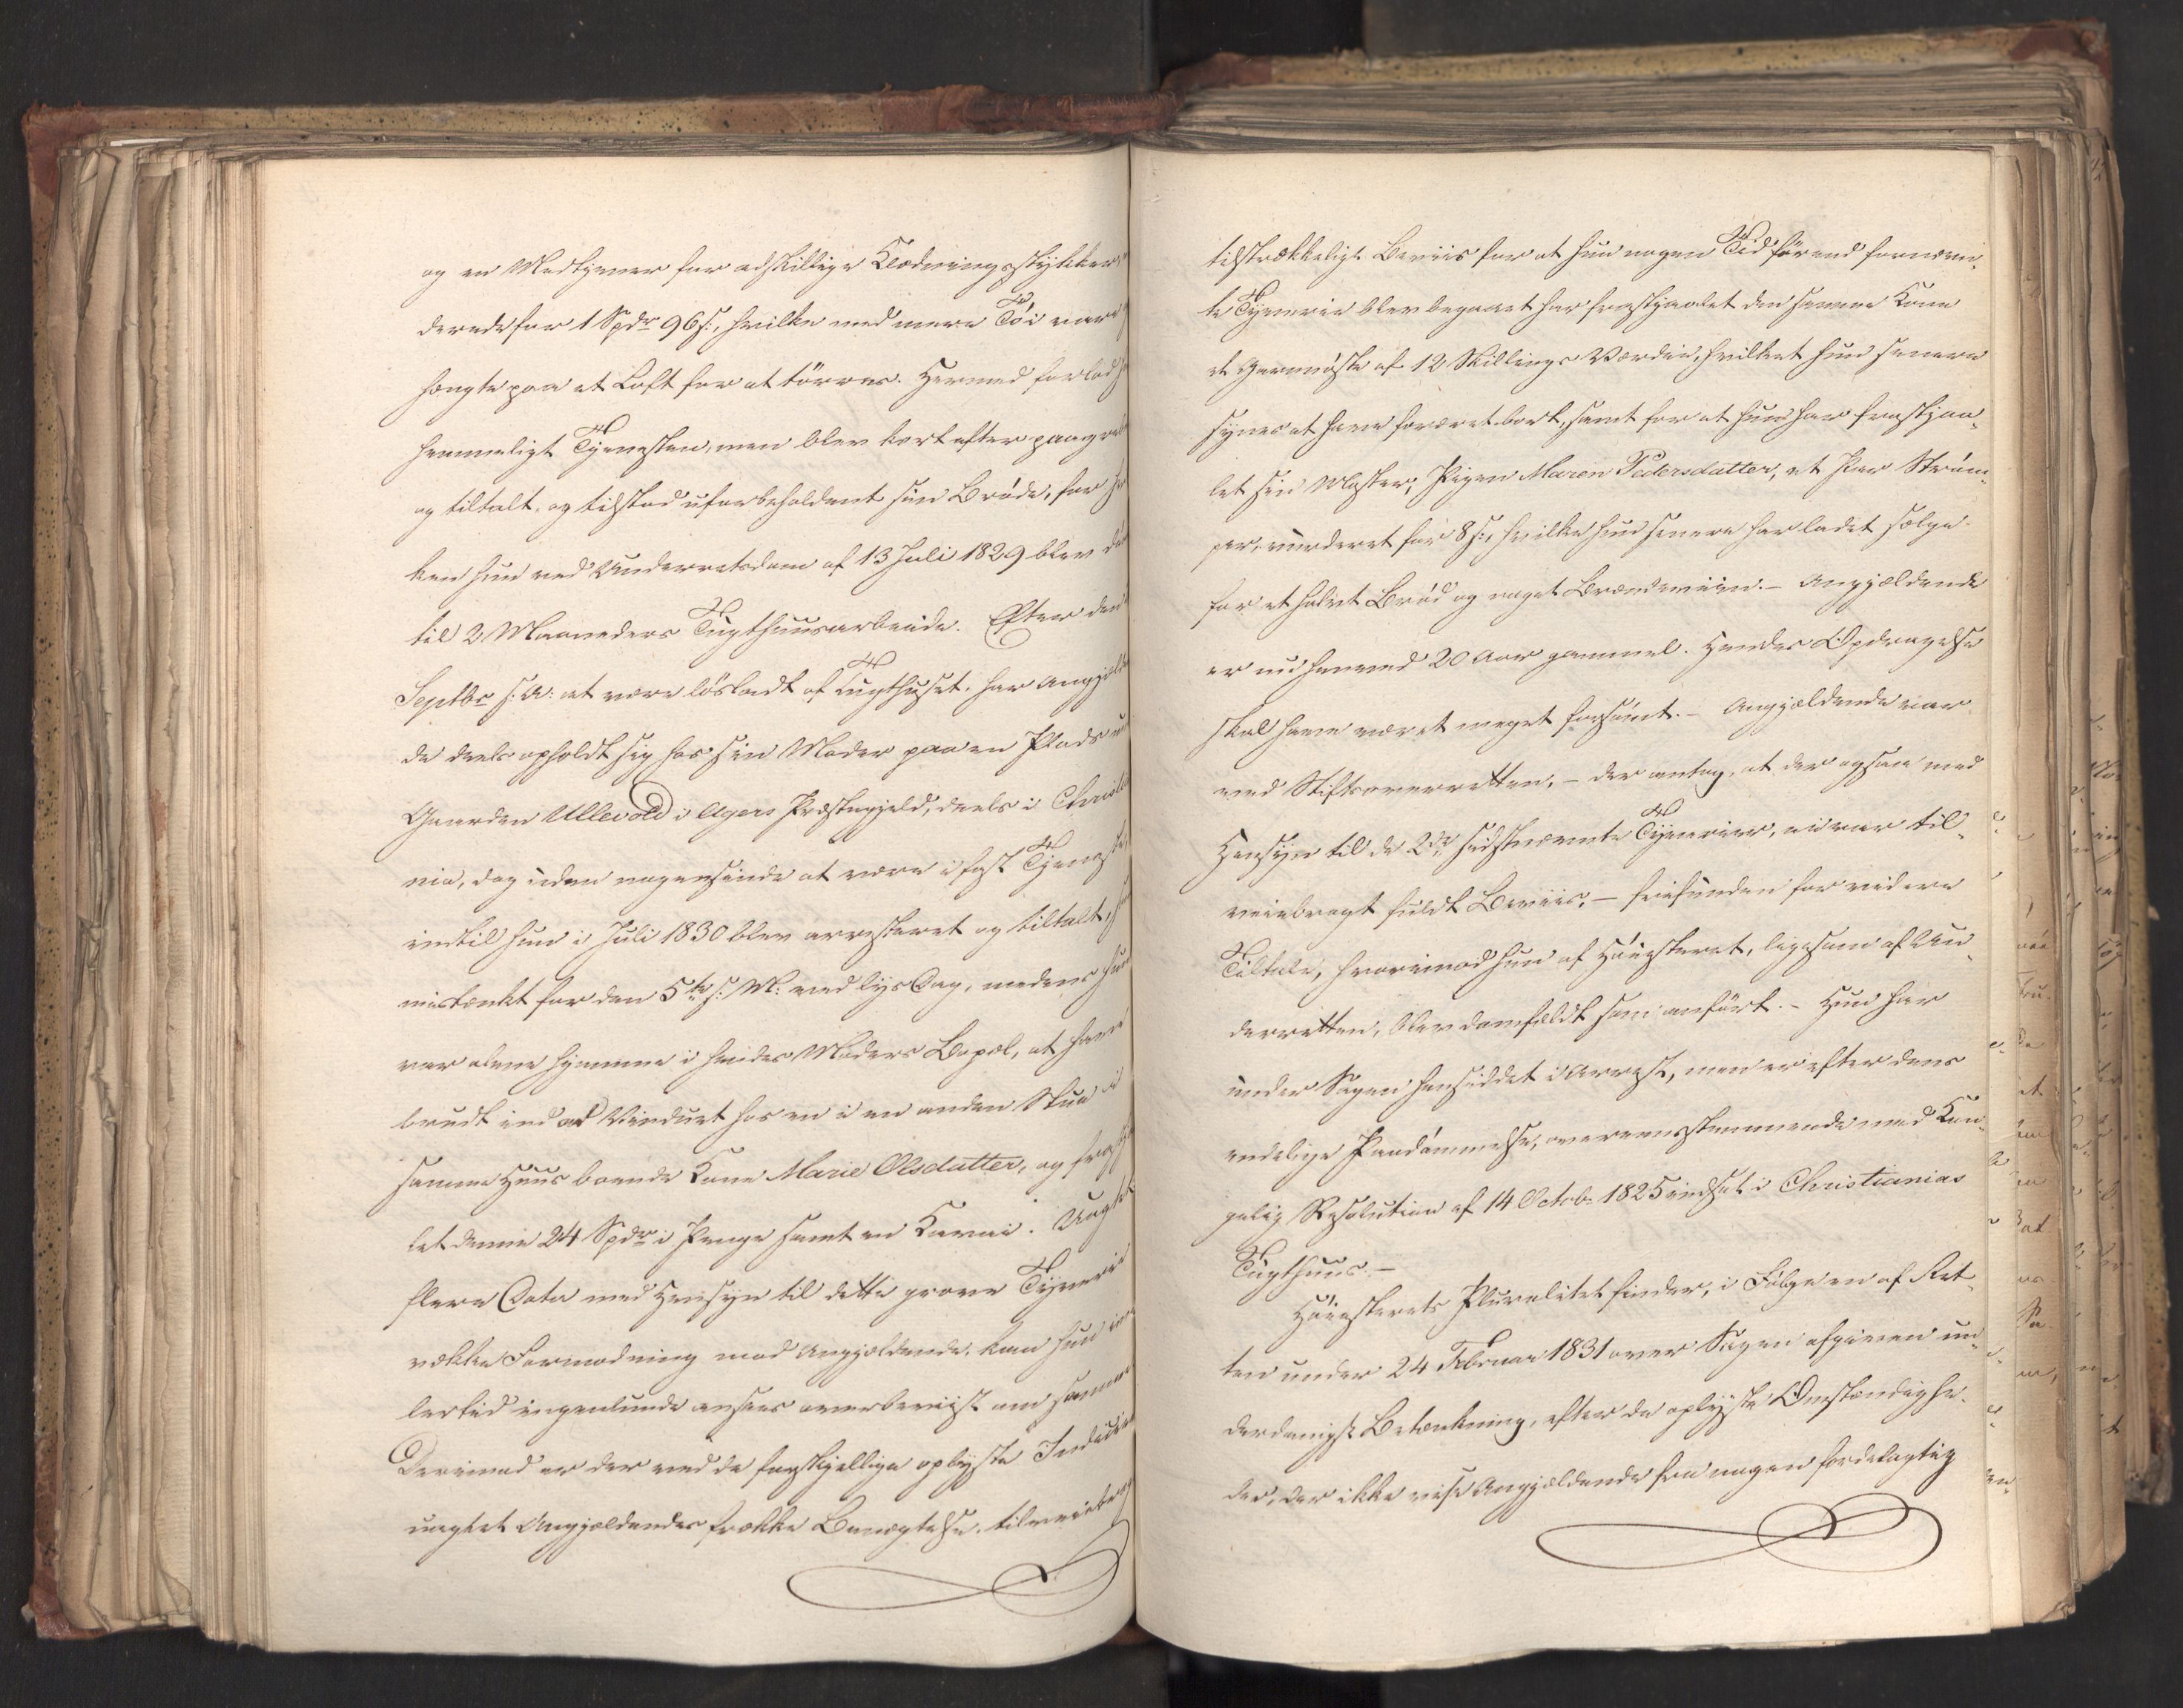 og en Medtyener for adskillige Klædningsstykker,
derede for 1 Spdr 96 s:, hvilke med mere Töi vare
hængte paa et Loft for at törres. Hermed forlod
hemmeligt Tyenesten, men blev kort efter paagre
og tiltalt, og tilstod uforbeholdent sin Bröde, for
ken hun ved Underretsdom af 13 Juli 1829 blev
til 2 Maaneders Tugthuusarbeide. Efter den
Septbr s: A: at være lösladt af Tugthuset, har Angjæl
de deels opholdt sig hos sin Moder paa en Plads
Gaarden Ullevold i Agers Præstegjeld, deels i Christi
nia, dog uden nogensinde at være i fast Tjeneste
indtil hun i Juli 1830 blev arresteret og tiltalt,
mistænkt for den 5te s: M: ved lys Dag, medens hun
var alene hjemme i hendes Moders Bopæl, at have
brudt ind ad Vinduet hos en i en anden Stue i
samme Huus boende Kone Marie Olsdatter, og
let denne 24 Spdr i Penge samt en Kavai. Uagtet
flere Data med Hensyn til dette grove Tyverie
vække Formodning mod Angjældende, kan hun im
lertid ingenlunde ansees overbeviist om samme
Derimod er der ved de forskjellige oplyste Indicier
uagtet Angjældendes frække Benægtelse, tilveiebragt
tilstrækkeligt Beviis for at hun nogen Tid förend fornævn-
te Tyverie blev begaaet har frastjaalet den samme Kone
et Garnnöste af 12 Skillings Værdie, hvilket hun senere
synes at have foræret bort, samt for at hun har frastjaa-
let sin Moster, Pigen Maren Pedersdatter, et Par Ström-
per, vurderet for 8 s:, hvilke hun senere har ladet sælge
for et halvt Bröd og noget Brændeviin. – Angjældende
er nu henved 20 Aar gammel. Hendes Opdragelse
skal have været meget forsömt. – Angjældende var
ved Stiftsoverretten, – der antog, at der ogsaa med
Hensyn til de 2de sidstnævnte Tyverier, ei var til-
veiebragt fuldt Beviis, – frifunden for videre
Tiltale, hvorimod hun af Höiesteret, ligesom af Un-
derretten, blev domfældt som anfört. – Hun har
under Sagen hensiddet i Arrest, men er efter dens
endelige Paadömmelse, overeensstemmende med Kon-
gelig Resolution af 14 Octob: 1825 indsat i Christianias
Tugthuus. –
Höiesterets Pluralitet finder, i Fölge en af Ret-
ten under 24 Februar 1831 over Sagen afgiven un-
derdanigst Betænkning, efter de oplyste Omstændighe-
der, der ikke vise Angjældende fra nogen fordelagtig